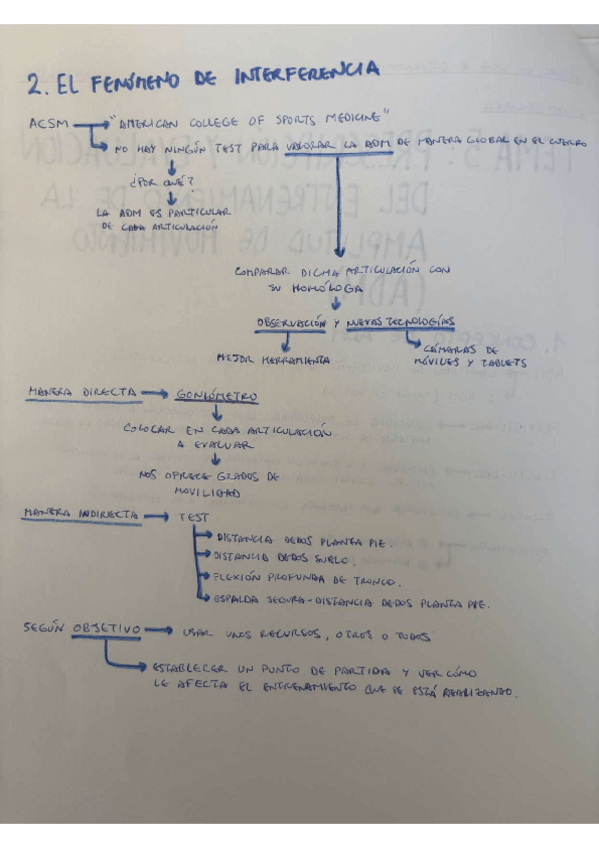 2. EL FENÓMENO DE INTERFERENCIA
ACSM → "AMERICAN COLLEGE OF SPORTS MEDICINE"
→ NO HAY NINGÚN TEST PARA VALORAR LA ADM DE MANERA GLOBAL EN EL CUERPO
¿POR QUÉ?
LA ADM ES PARTICULAR
DE CADA ARTICULACIÓN
COMPARAR DICHA ARTICULACIÓN CON
SU HOMÓLOGA
OBSERVACIÓN Y NUEVAS TECNOLOGÍAS
MEJOR HERRAMIENTA
CÁMARAS DE
MÓVILES Y TABLETS
MANERA DIRECTA → GONIÓMETRO
COLOCAR EN CADA ARTICULACIÓN
A EVALUAR
NOS OFRECE GRADOS DE
MOVILIDAD
MANERA INDIRECTA → TEST
→ DISTANCIA DEDOS PLANTA PIE.
→ DISTANCIA DEDOS SUELO.
→ FLEXIÓN PROFUNDA DE TRONCO.
→ ESPALDA SEGURA - DISTANCIA DEDOS PLANTA PIE.
SEGÚN OBJETIVO → USAR UNOS RECURSOS, OTROS O TODOS
→ ESTABLECER UN PUNTO DE PARTIDA Y VER CÓMO
LE AFECTA EL ENTRENAMIENTO QUE SE ESTÁ REALIZANDO.